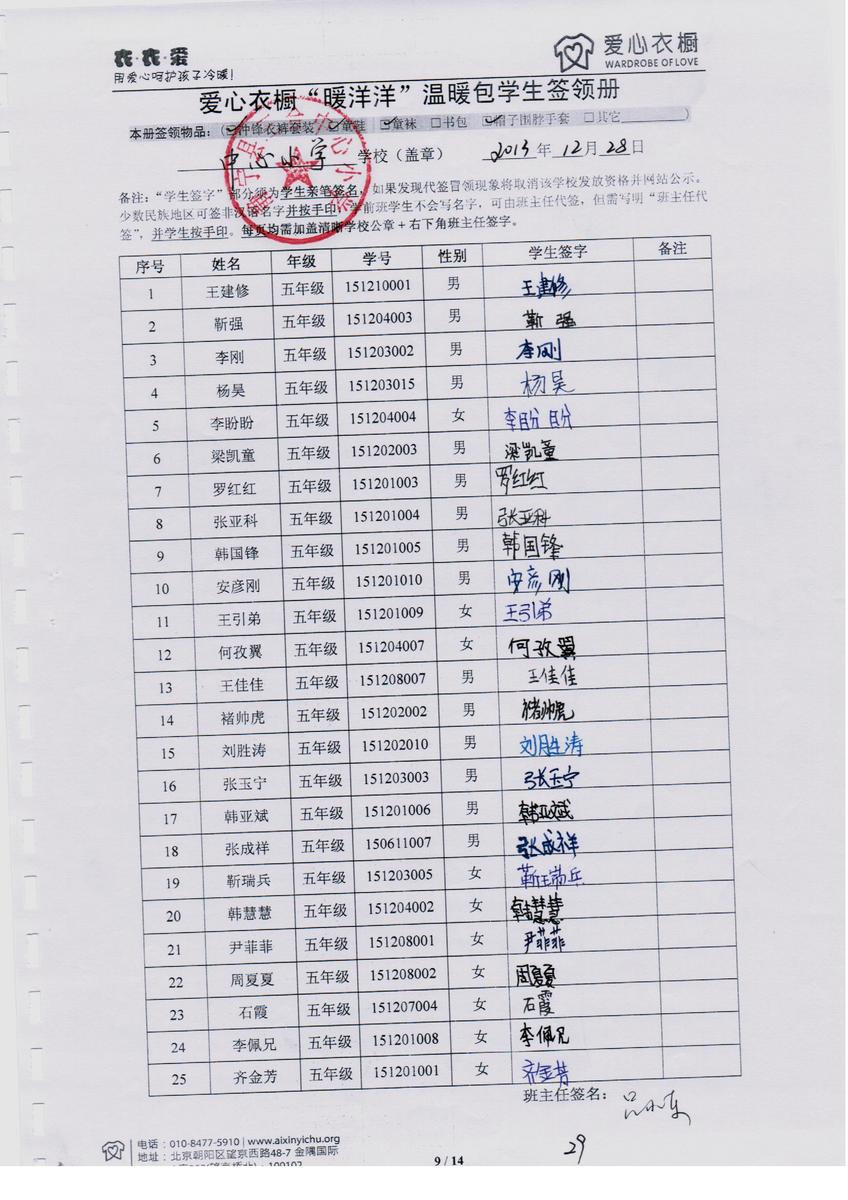 衣·衣·爱
用爱心呵护孩子冷暖!
爱心衣橱
WARDROBE OF LOVE
爱心衣橱“暖洋洋”温暖包学生签领册
本册签领物品:(☑冲锋衣裤套装 ☑童鞋 ☑童袜 □书包 ☑帽子围脖手套 □其它
中心小学 学校(盖章) 2013年12月28日
备注:“学生签字”部分须为学生亲笔签名,如果发现代签冒领现象将取消该学校发放资格并网站公示。
少数民族地区可签非汉语名字并按手印,学前班学生不会写名字,可由班主任代签,但需写明“班主任代
签”,并学生按手印。每页均需加盖清晰学校公章+右下角班主任签字。
序号 姓名 年级 学号 性别 学生签字 备注
1 王建修 五年级 151210001 男 王建修
2 靳强 五年级 151204003 男 靳强
3 李刚 五年级 151203002 男 李刚
4 杨昊 五年级 151203015 男 杨昊
5 李盼盼 五年级 151204004 女 李盼盼
6 梁凯童 五年级 151202003 男 梁凯童
7 罗红红 五年级 151201003 男 罗红红
8 张亚科 五年级 151201004 男 张亚科
9 韩国锋 五年级 151201005 男 韩国锋
10 安彦刚 五年级 151201010 男 安彦刚
11 王引弟 五年级 151201009 女 王引弟
12 何孜翼 五年级 151204007 女 何孜翼
13 王佳佳 五年级 151208007 男 王佳佳
14 褚帅虎 五年级 151202002 男 褚帅虎
15 刘胜涛 五年级 151202010 男 刘胜涛
16 张玉宁 五年级 151203003 男 张玉宁
17 韩亚斌 五年级 151201006 男 韩亚斌
18 张成祥 五年级 150611007 男 张成祥
19 靳瑞兵 五年级 151203005 女 靳瑞兵
20 韩慧慧 五年级 151204002 女 韩慧慧
21 尹菲菲 五年级 151208001 女 尹菲菲
22 周夏夏 五年级 151208002 女 周夏夏
23 石霞 五年级 151207004 女 石霞
24 李佩兄 五年级 151201008 女 李佩兄
25 齐金芳 五年级 151201001 女 齐金芳
班主任签名:
29
电话:010-8477-5910 | www.aixinyichu.org
地址:北京朝阳区望京西路48-7 金隅国际
9 / 14